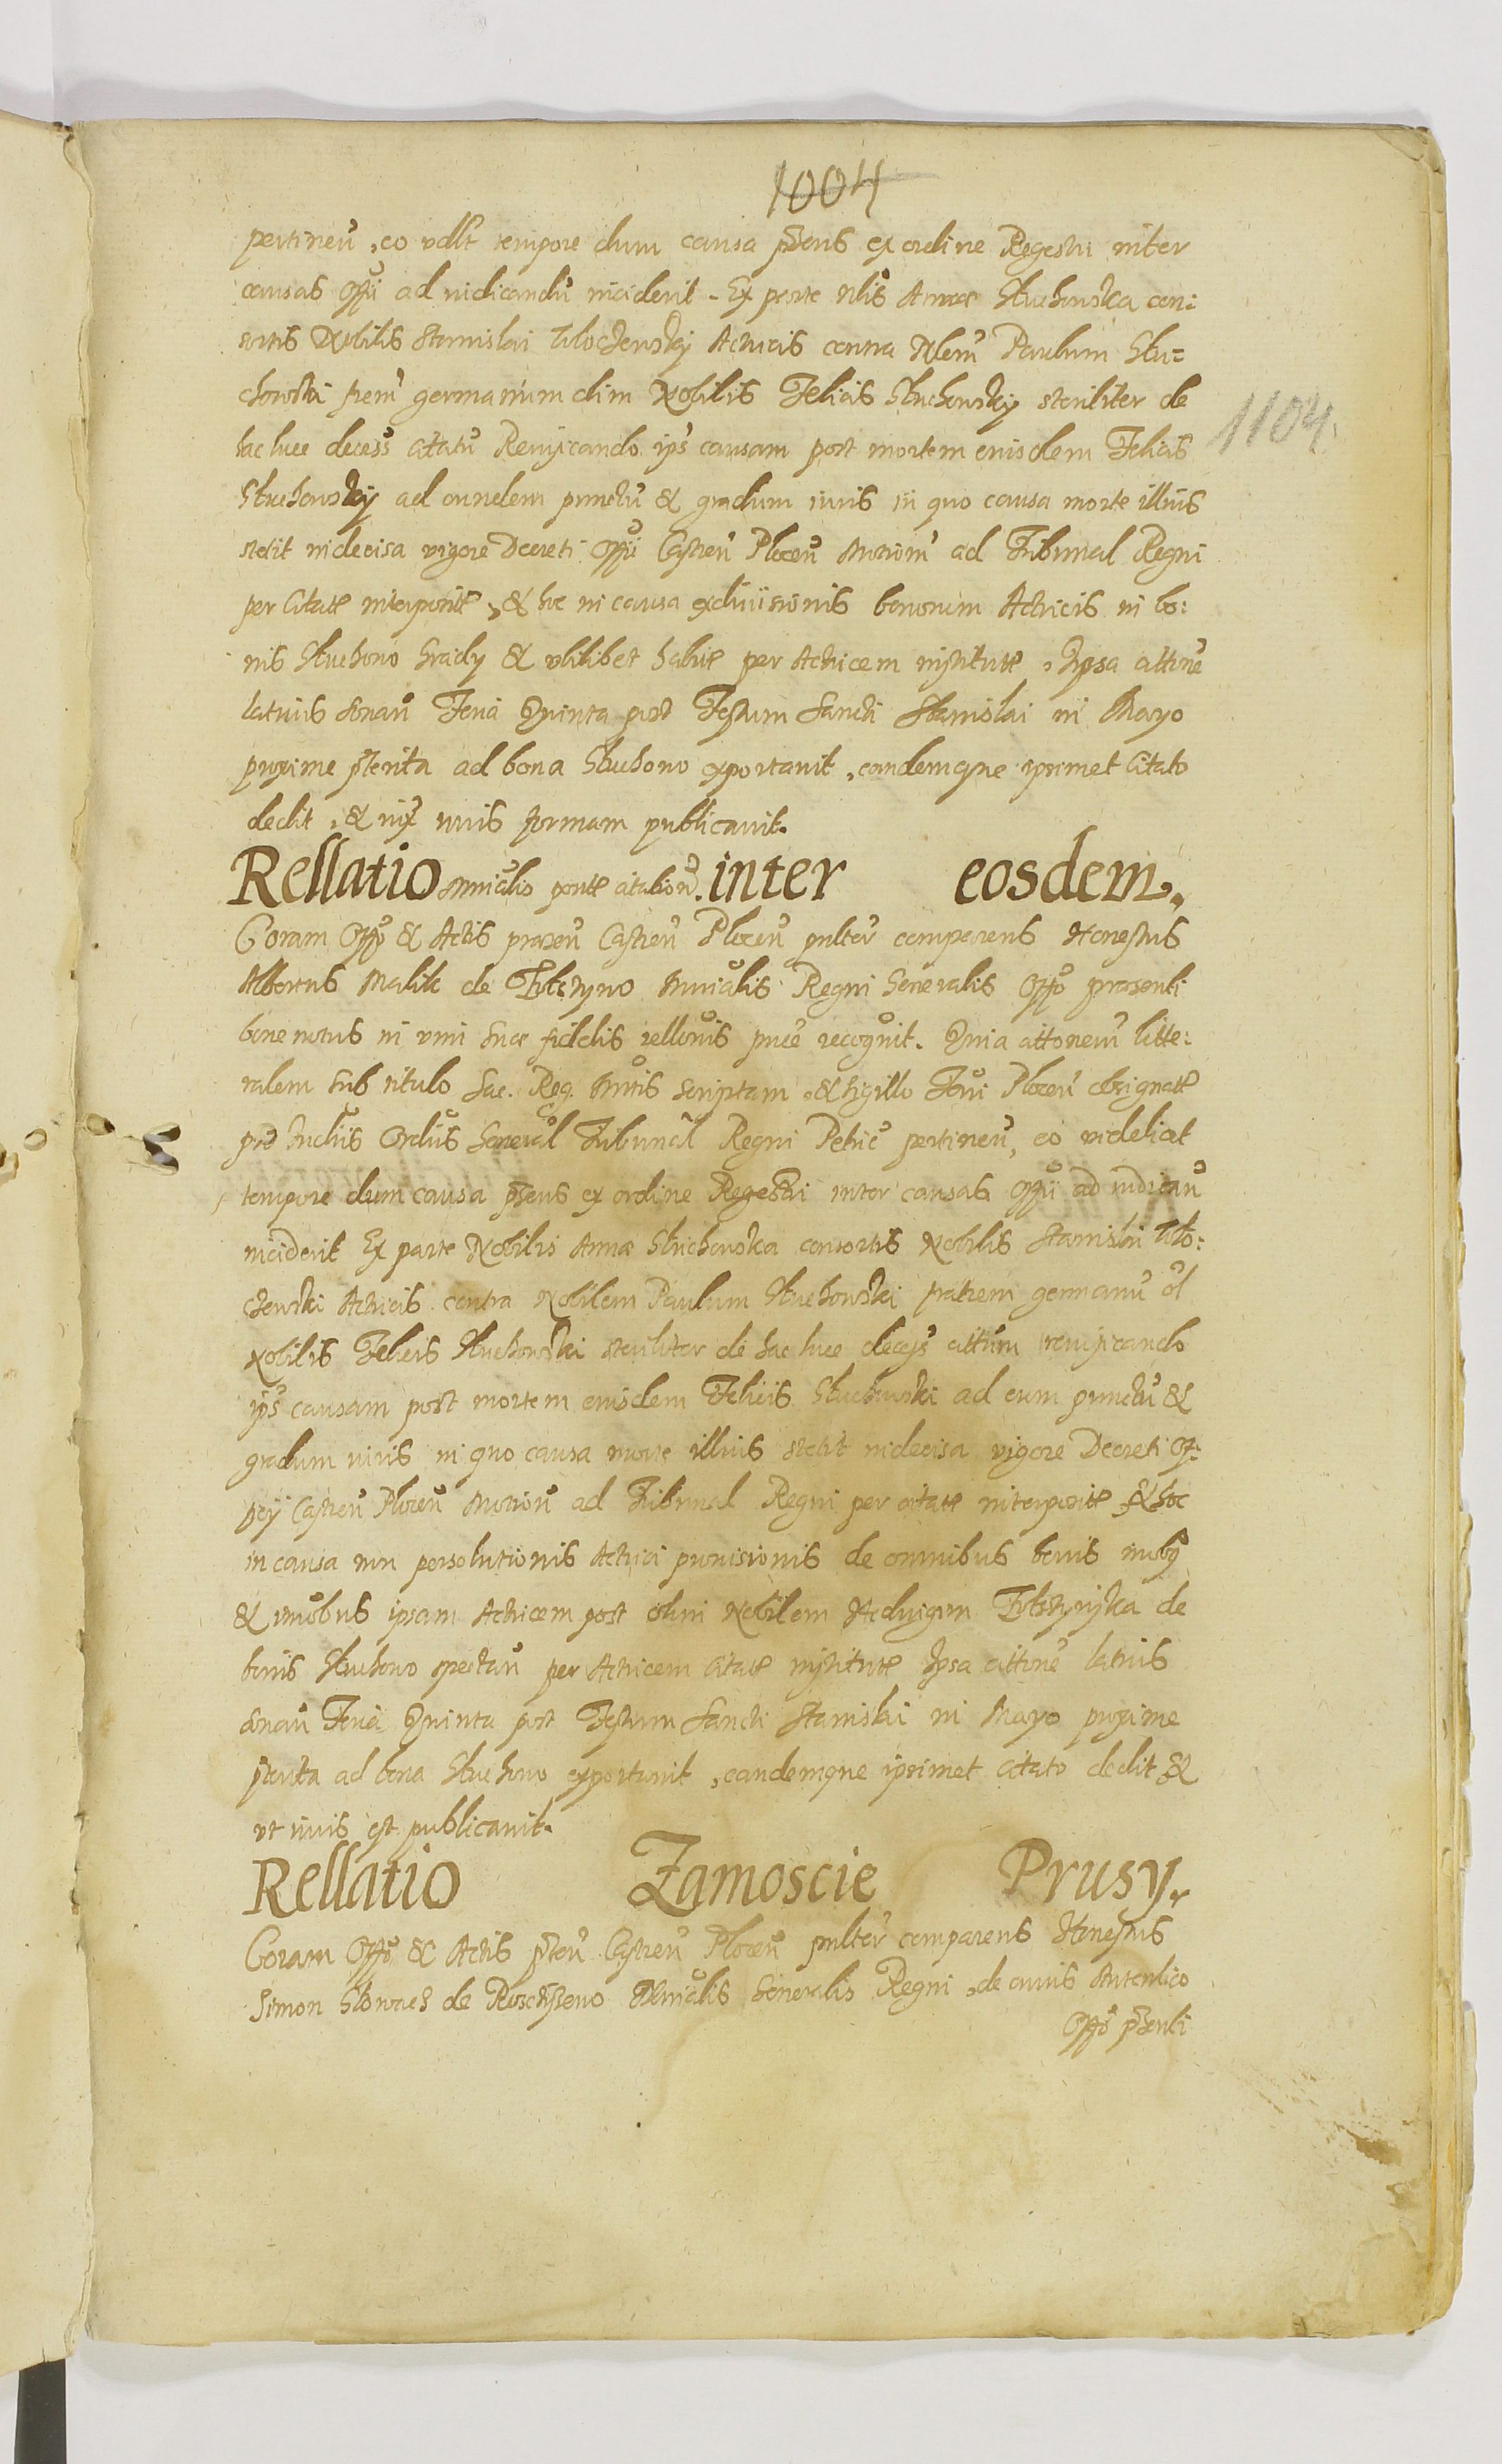 1004
pertineñ, eo vdlt tempore dum causa pñs ex ordine Regestri inter
causas Offii ad iudicandũ inciderit. Ex parte Nlis Annæ Stuchowska con:
sortis Nobilis Stanislai Actricis contra Nlem Paulum Stu=
chowski frem germanum olim Nobilis Felicis Stuchowsky steriliter de
hac luce decess citatũ Reuijcando ips causam post mortem eiusdem Felicis
1104.
Stuchowsky ad eundem punctũ & gradum iuris in quo causa morte illius
stetit indecisa vigore Decreti Offii Castreñ Ploceñ motioñ ad Tribunal Regni
per Citatẽ interpositẽ, & hoc in causa exdiuisionis bonorum Actricis in bo:
nis Stuchowo Grady & vbilibet habitẽ per Actricem institutẽ, Ipsa cittone
latius sonañ Feria Quinta post Festum Sancti Stanislai in Mayo
proxime pterita ad bona Stuchowo exportauit, eandemque ipsimet Citato
dedit, & iux iuris formam publicauit.
Rellatio citationũ. inter eosdem.
Coram Offo & Actis præseñ Castreñ Ploceñ psnlter comparens Honestus
Albertus Malik de Ministerialis Regni Generalis Offo præsenti
bene notus in vim suæ fidelis rellonis pnce recognit. Quia cittonem litte:
ralem sub titulo Sac. Reg. Mttis scriptam, & sigillo Terri Ploceñ obsignatẽ
pro Iudiis Ordiis General Tribunal Regni Petric pertineñ, eo videlicet
tempore dum causa pñs ex ordine Regestri inter causas Offii ad iudicañ
inciderit Ex parte Nobilis Annæ Stuchowska consortis Nobilis Stanislai
Actricis contra Nobilem Paulum Stuchowski fratrem germanũ ol
Nobilis Felicis Stuchowski steriliter de hac luce decess cittum reuijcando
ips causam post mortem eiusdem Felicis Stuchowski ad eum punctũ &
gradum iuris in quo causa morte illius stetit indecisa vigore Decreti Of:
ficy Castreñ Ploceñ motioñ ad Tribunal Regni per citatẽ interpositẽ & hoc
in causa non persolutionis Actrici prouisionis de omnibus bonis mobg
& imobus ipsam Actricem post olim Nobilem Heduigim de
bonis Stuchowo spectañ per Actricem Citatẽ institutẽ Ipsa cittone latius
sonañ Feria Quinta post Festum Sancti Stanislai in Mayo proxime
pterita ad bona Stuchowo exportauit, eandemque ipsimet citato dedit &
vt iuris est publicauit.
Rellatio Zamoscie Prusy.
Coram Offo & Actis pñteñ Castreñ Ploceñ psnlter comparens Honestus
Simon de Ministerialis Generalis Regni, de cuius Autentico
Offo pñsenti